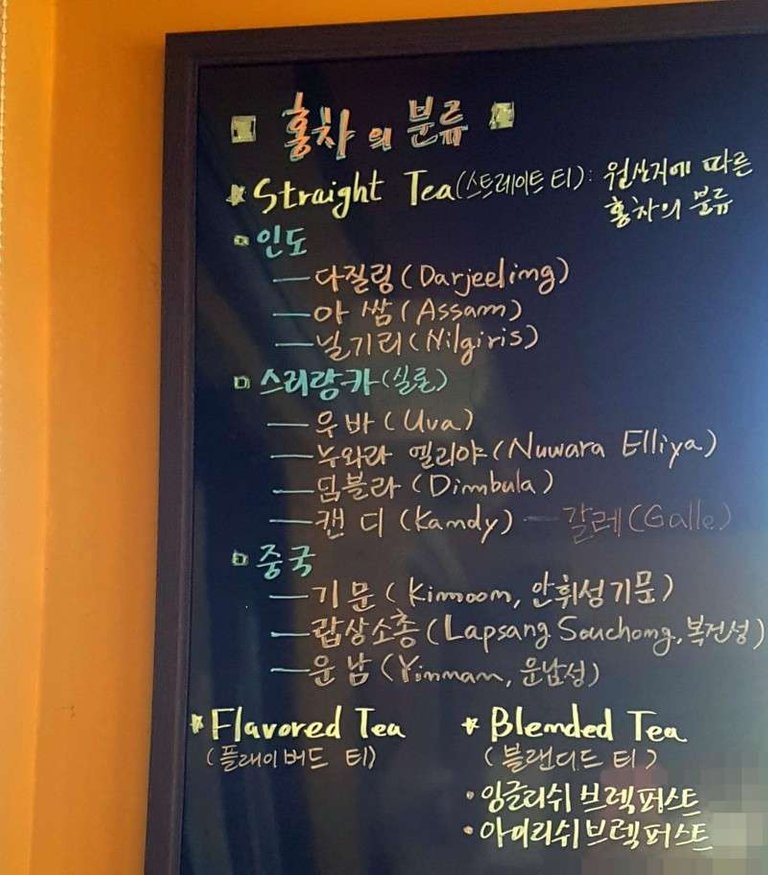 홍차의 분류
Straight Tea(스트레이트 티): 원산지에 따른
홍차의 분류
인도
— 다질링 (Darjeeling)
— 아 쌈 (Assam)
— 닐기리 (Nilgiris)
스리랑카(실론)
— 우 바 (Uva)
— 누와라 엘리야 (Nuwara Elliya)
— 딤블라 (Dimbula)
— 캔 디 (Kandy) — 갈레 (Galle)
중국
— 기 문 (Kimoon, 안휘성기문)
— 랍상소총 (Lapsang Souchong, 복건성)
— 운 남 (Yinnan, 운남성)
Flavored Tea
(플레이버드 티)
Blended Tea
(블랜디드 티)
· 잉글리쉬 브렉퍼스트
· 아이리쉬 브렉퍼스트